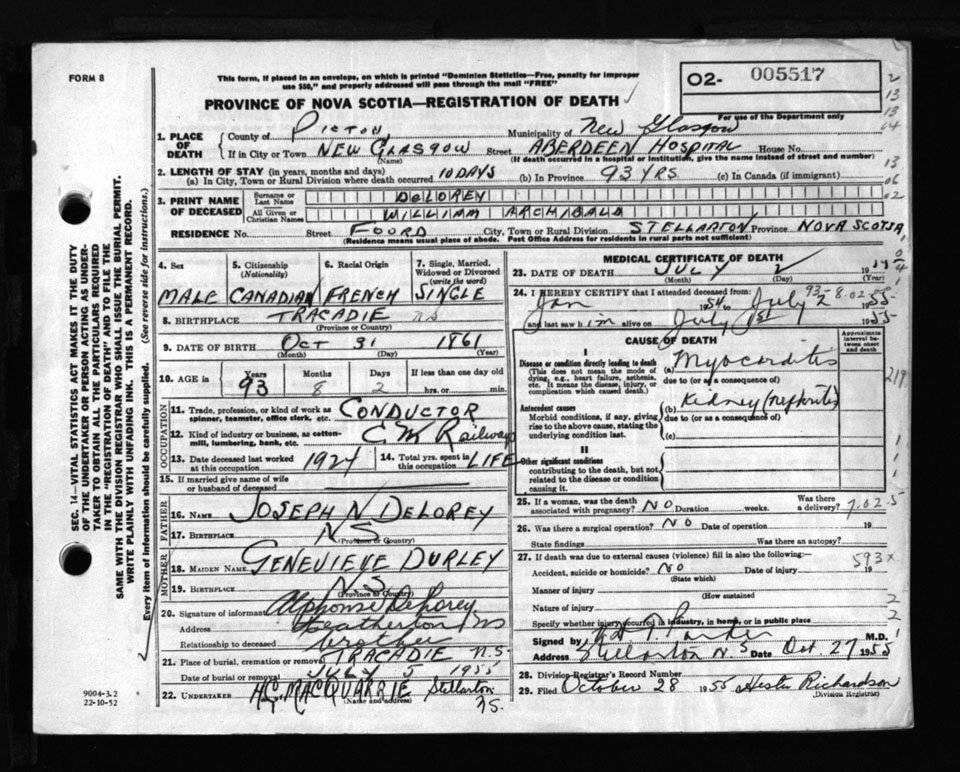 FORM 8
This form, if placed in an envelope, on which is printed "Dominion Statistics—Free, penalty for improper
use $50," and properly addressed will pass through the mail "FREE"
PROVINCE OF NOVA SCOTIA—REGISTRATION OF DEATH
02- 005517
For use of the Department only
1. PLACE OF DEATH
County of Pictou, Municipality of New Glasgow
If in City or Town NEW GLASGOW Street ABERDEEN HOSPITAL House No.
(Name) (If death occurred in a hospital or institution, give the name instead of street and number)
2. LENGTH OF STAY (in years, months and days)
(a) In City, Town or Rural Division where death occurred 10 DAYS (b) In Province 93 YRS (c) In Canada (if immigrant)
3. PRINT NAME OF DECEASED
Surname or Last Name DELOREY
All Given or Christian Names WILLIAM ARCHIBALD
RESIDENCE No. Street FOORD City, Town or Rural Division STELLARTON Province NOVA SCOTIA
(Residence means usual place of abode. Post Office Address for residents in rural parts not sufficient)
4. Sex MALE
5. Citizenship (Nationality) CANADIAN
6. Racial Origin FRENCH
7. Single, Married, Widowed or Divorced (write the word) SINGLE
8. BIRTHPLACE TRACADIE NS
(Province or Country)
9. DATE OF BIRTH Oct 31 1861
(Month) (Day) (Year)
10. AGE in Years 93 Months 8 Days 2 If less than one day old
hrs. or min.
OCCUPATION
11. Trade, profession, or kind of work as spinner, teamster, office clerk, etc. CONDUCTOR
12. Kind of industry or business, as cotton-mill, lumbering, bank, etc. Railways
13. Date deceased last worked at this occupation 1924
14. Total yrs. spent in this occupation LIFE
15. If married give name of wife or husband of deceased
FATHER
16. NAME JOSEPH N DELOREY
17. BIRTHPLACE NS
(Province or Country)
MOTHER
18. MAIDEN NAME GENEVIEVE DURLEY
19. BIRTHPLACE N.S
(Province or Country)
20. Signature of informant Alphonse Delorey
Address Heatherton NS
Relationship to deceased brother
21. Place of burial, cremation or removal TRACADIE N.S.
Date of burial or removal JULY 5 1955
22. UNDERTAKER H.G. MACQUARRIE Stellarton NS.
(Name and address)
MEDICAL CERTIFICATE OF DEATH
23. DATE OF DEATH JULY 2 1955
(Month) (Day) (Year)
24. I HEREBY CERTIFY that I attended deceased from:
Jan 1954 to July 2 1955
and last saw him alive on July 1st 1955
93-8-02
CAUSE OF DEATH
Approximate interval between onset and death
I
Disease or condition directly leading to death
(This does not mean the mode of dying, e.g., heart failure, asthenia, etc. It means the disease, injury, or complication which caused death.)
(a) Myocarditis
due to (or as a consequence of)
Antecedent causes
Morbid conditions, if any, giving rise to the above cause, stating the underlying condition last.
(b) Kidney (Nephritis)
due to (or as a consequence of)
(c)
II
Other significant conditions
contributing to the death, but not related to the disease or condition causing it.
25. If a woman, was the death associated with pregnancy? NO Duration weeks. Was there a delivery?
7.02.5
26. Was there a surgical operation? NO Date of operation 19
State findings Was there an autopsy?
27. If death was due to external causes (violence) fill in also the following:—
593x
Accident, suicide or homicide? NO Date of injury 19
(State which)
Manner of injury
(How sustained
Nature of injury
Specify whether injury occurred in industry, in home, or in public place
Signed by M.D.
Address Stellarton N S Date Oct. 27 1955
28. Division Registrar's Record Number
29. Filed October 28 1955 Hester Richardson
(Division Registrar)
SEC. 14—VITAL STATISTICS ACT MAKES IT THE DUTY
OF THE UNDERTAKER OR PERSON ACTING AS UNDER-
TAKER TO OBTAIN ALL THE PARTICULARS REQUIRED
IN THE "REGISTRATION OF DEATH" AND TO FILE THE
SAME WITH THE DIVISION REGISTRAR WHO SHALL ISSUE THE BURIAL PERMIT.
WRITE PLAINLY WITH UNFADING INK. THIS IS A PERMANENT RECORD.
Every item of information should be carefully supplied. (See reverse side for instructions.)
9004-3.2
22-10-52